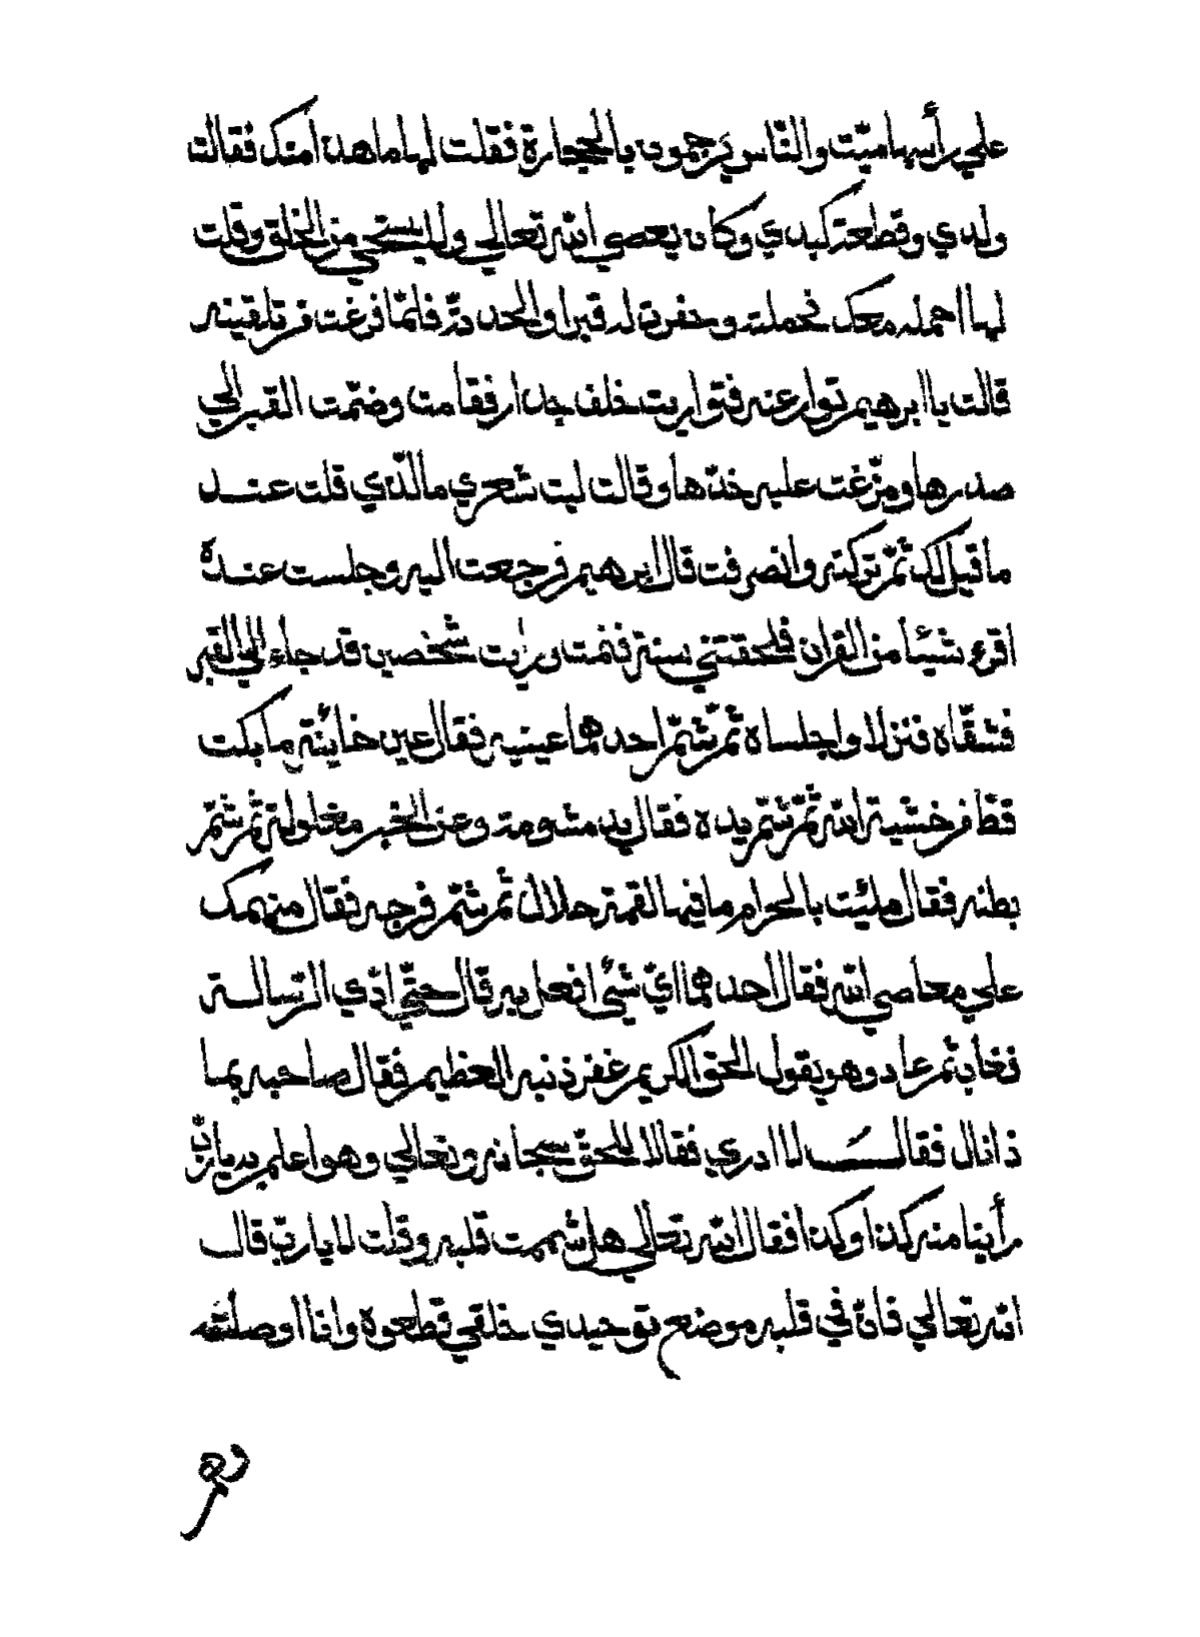 علي رأسها ميّت والنّاس يَرجمون بالحجارة فقلت لها ما هذا منك فقالت
ولدي وقطعة كبدي وكان يعصي الله تعالي ولا يستحي من الخلق وقلت
لها احمله معك فحملته وحفرت له قبرا والحدتّه فلمّا فرغت من تلقينه
قالت يا ابرهيم توار عنه فتواريت خلف جدار فقامت وضمّت القبر الي
صدرها ومرّغت عليه خدّها وقالت ليت شعري ما الّذي قلت عند
ما قيل لك ثمّ تركته وانصرفت قال ابرهيم فرجعت اليه وجلست عنده
اقرء شيئا من القران فلحقتني سنة فنمت ورايت شخصين قد جاء الي القبر
فشقّاه فنزلا واجلساه ثمّ شمّ احدهما عينيه فقال عين خائنة ما بكت
قطّ من خشية الله ثمّ شمّ يده فقال يد مشومة وعن الخير مغلولة ثم شمّ
بطنه فقال مليئت بالحرام ما فيها لقمة حلال ثم شمّ فرجه فقال منهمك
علي معاصي الله فقال احدهما ايّ شئ افعل به قال حتّي ادّي الرّسالة
فغاب ثم عاد وهو يقول الحق الكريم غفر ذنبه العظيم فقال صاحبه بما
ذا نال فقال لا ادري فقالا للحقّ سبحانه وتعالي وهو اعلم به يا ربّ
رأينا منه كذا وكذا فقال الله تعالي هل شممت قلبه وقلت لا يا ربّ قال
الله تعالي فانّ في قلبه موضع توحيدي خلقي قطعوه وانا اوصلته